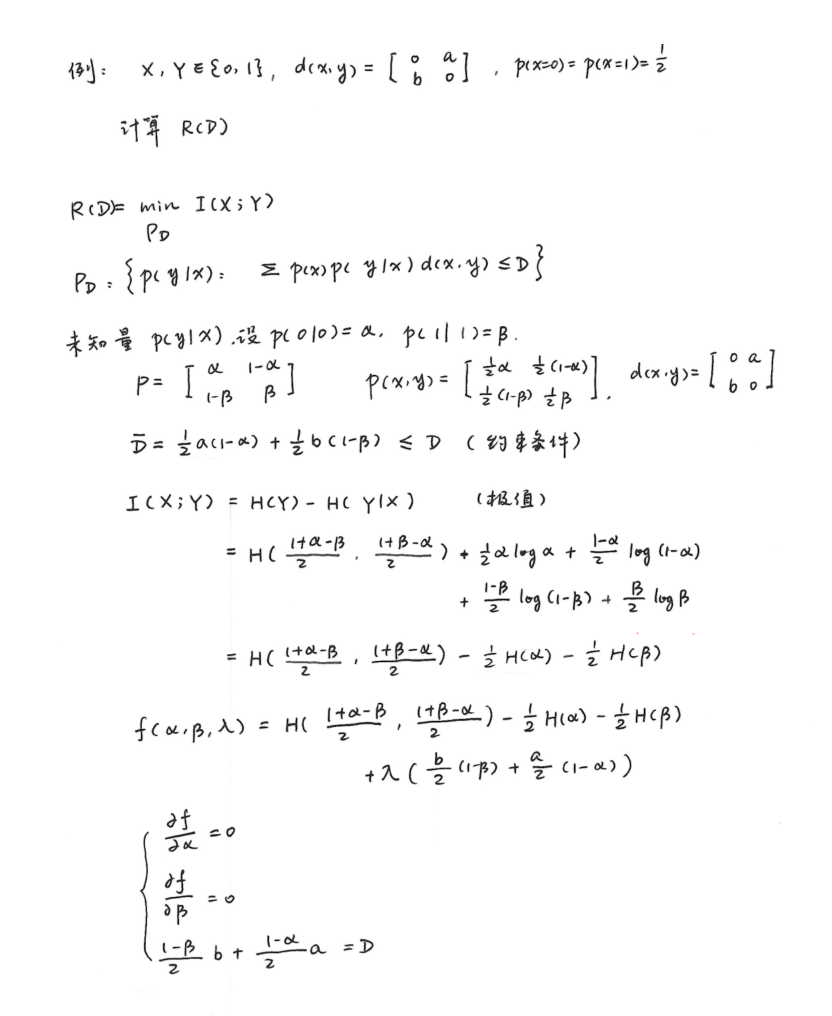 例: X, Y∈{0, 1}, d(x,y) = [0 a; b 0], p(x=0) = p(x=1) = 1/2
计算 R(D)
R(D)= min I(X;Y)
P_D
P_D : {p(y|x): Σ p(x)p(y|x)d(x,y) ≤ D}
未知量 p(y|x). 设 p(0|0) = α, p(1|1) = β.
P = [α 1-α; 1-β β] p(x,y) = [1/2α 1/2(1-α); 1/2(1-β) 1/2β], d(x,y) = [0 a; b 0]
D̄ = 1/2 a(1-α) + 1/2 b(1-β) ≤ D (约束条件)
I(X;Y) = H(Y) - H(Y|X) (极值)
= H((1+α-β)/2, (1+β-α)/2) + 1/2 α log α + (1-α)/2 log(1-α)
+ (1-β)/2 log(1-β) + β/2 log β
= H((1+α-β)/2, (1+β-α)/2) - 1/2 H(α) - 1/2 H(β)
f(α,β,λ) = H((1+α-β)/2, (1+β-α)/2) - 1/2 H(α) - 1/2 H(β)
+ λ(b/2 (1-β) + a/2 (1-α))
∂f/∂α = 0
∂f/∂β = 0
(1-β)/2 b + (1-α)/2 a = D